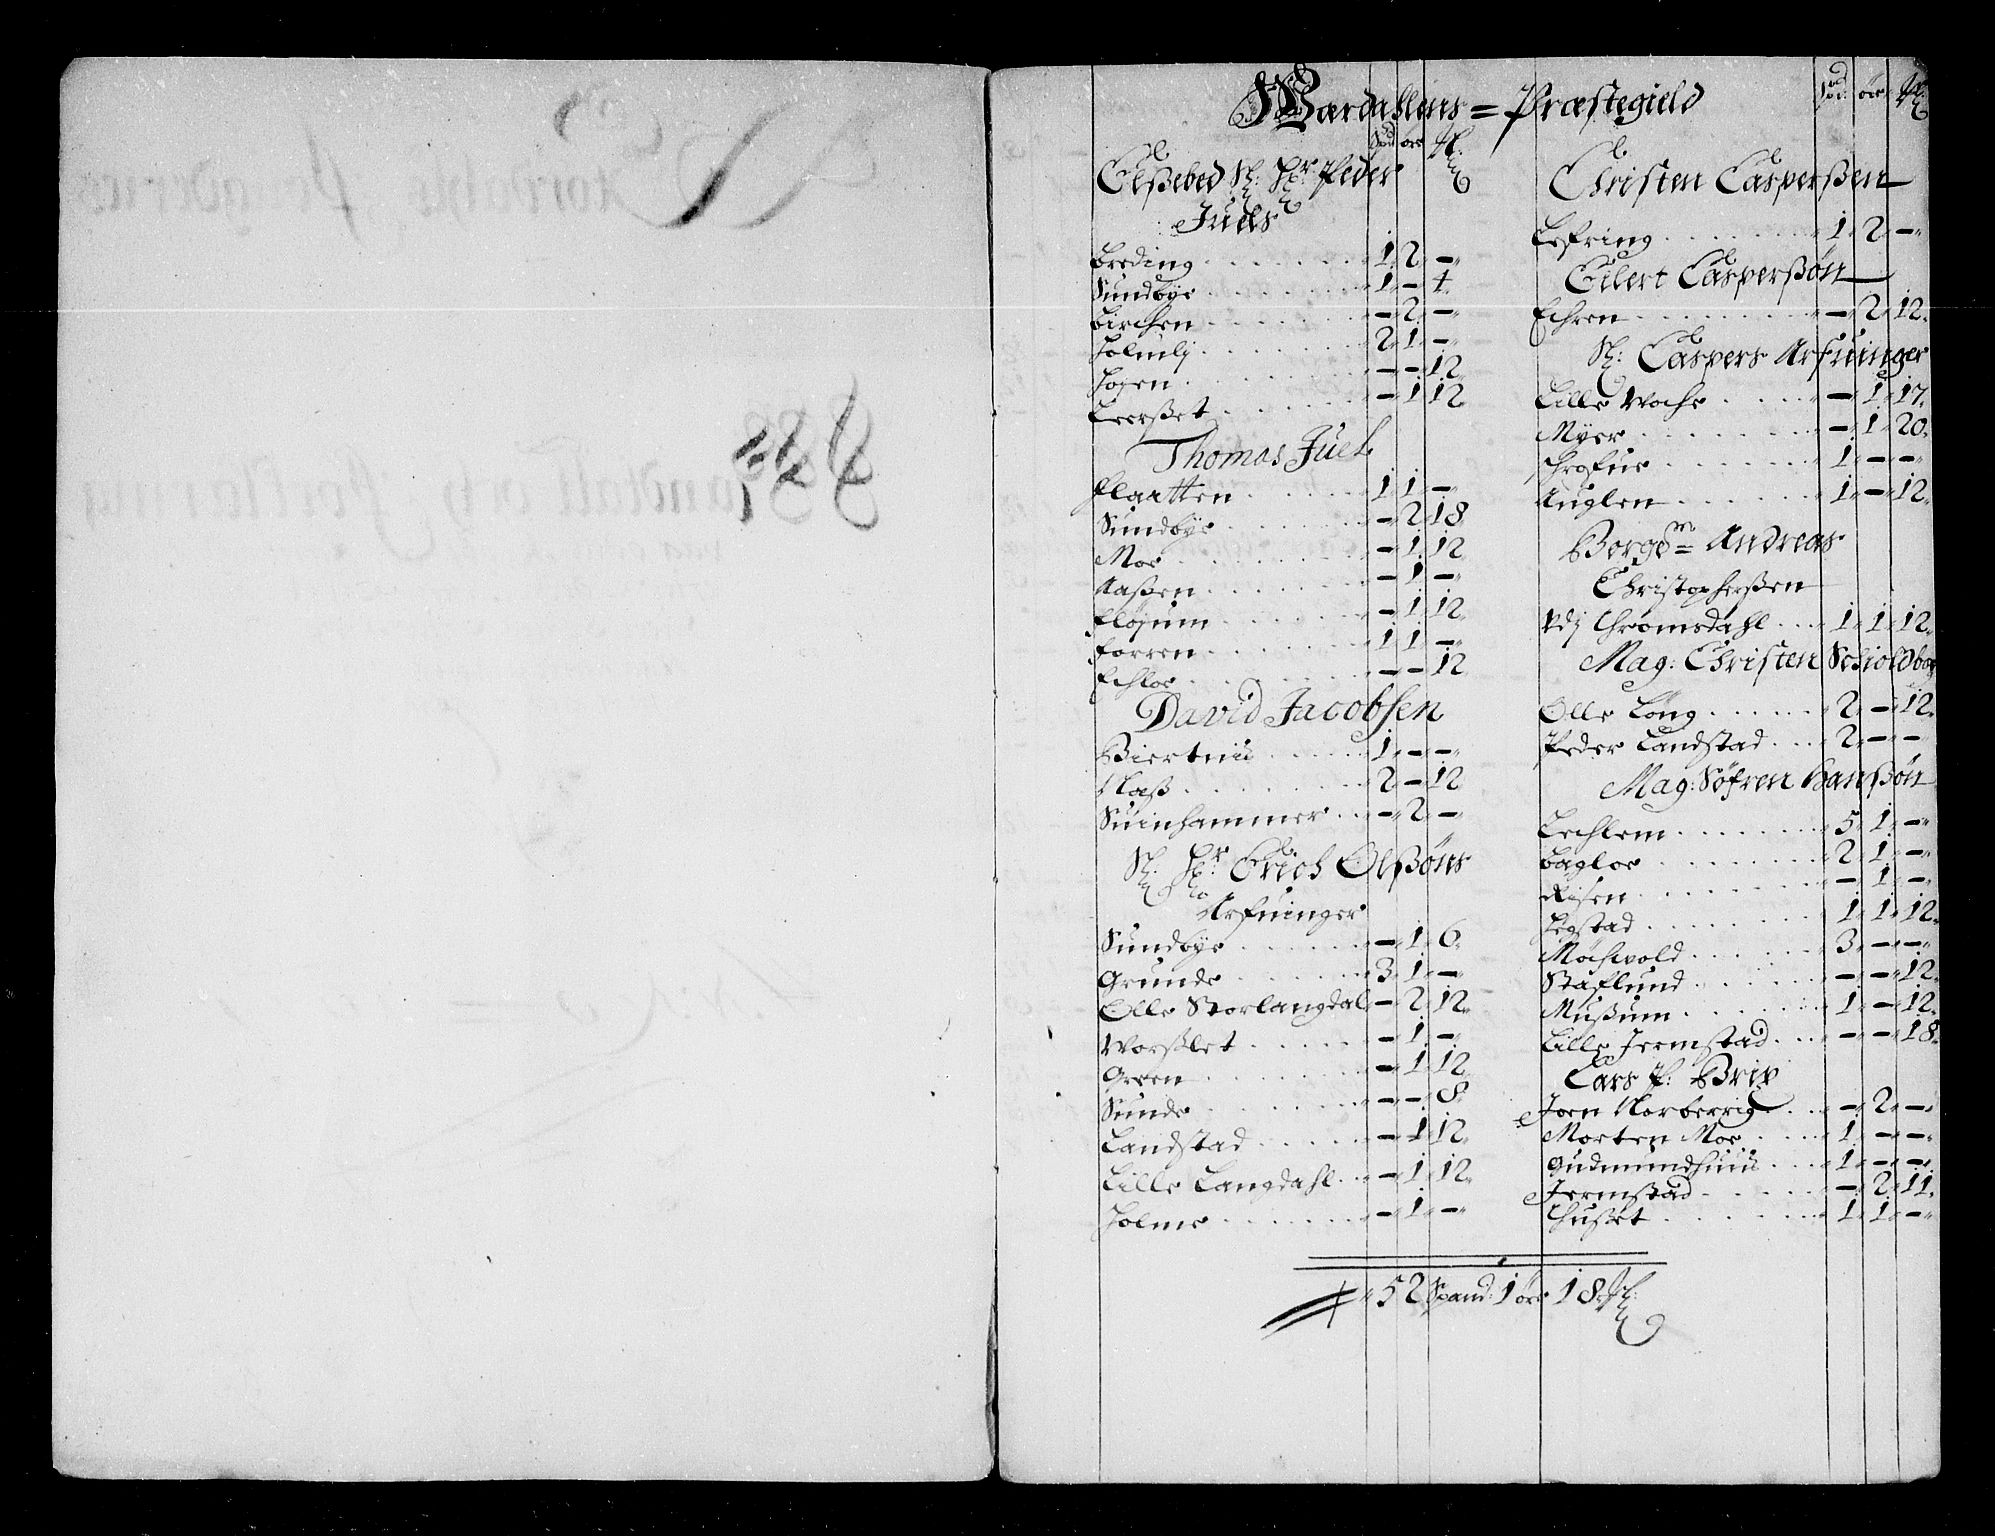 Wærdahlens = Præstegield
Spd: øre
Elßebed Sl: Hr: Peder
Juels
Breding . . . 1. 2. —
Sundbye . . . 1. — 4.
Birchen . . . — 2. —
Holmlj . . . 2. 1. —
Hogen . . . — — 12
Leerßet . . . — 1. 12
Thomas Juel
Flaatten . . . 1. 1. —
Sundbye . . . — 2. 18
Moe . . . — 1. 12
Aaßen . . . — 1. —
Fløjum . . . — 1. 12
Forren . . . 1. 1. —
Echloe . . . — — 12
David Jacobsen
Biertnis . . . 1. — —
Naß . . . 2. — 12
Suinhammer . . . — 2. —
Sl: Hr: Erich Olßøns
Arfuinger
Sundbye . . . — 1. 6.
Grunde . . . 3. 1. —
Olle Storlangdal — 2. 12.
Worßlet . . . — 1. —
Green . . . — 1. 12
Sunde . . . — — 8.
Landstad . . . — 1. 12.
Lille Langdahl . . . — 1. 12.
Holme . . . — 1. —
Spd: øre
Christen Casperßen
Lefring . . . 1. 2. —
Eilert Casperßøn
Echren . . . — 2. 12.
Sl: Caspers Arfuinger
Lille Wache . . . — 1. 17.
Myer . . . — 1. 20.
1. — —
Auglen . . . 1. — 12.
Borgem: Andreas
Christopherßen
Chromsdahl . . . 1. 1. 12.
Mag: Christen Schioldborg
Olle Lÿng . . . 2. — 12.
Peder Landstad . . . 2. — —
Mag: Søfren Hanßøn
Lechlem . . . 5. 1. —
Bagloe . . . 2. 1. —
Risen . . . — 1. —
Hegstad . . . 1. 1. 12.
Mochwold . . . 3. — —
Staflund . . . — — 12.
Mußum . . . 1. — 12.
Lille Jermstad . . . — — 18.
Lars P: Brix
Joen Norberrig . . . — 2. —
Morten Moe . . . 1. — —
Gudmundhuus . . . 1. — —
Jermstad . . . — 2. 11.
Hußet . . . 1. 1. —
52 Spand: 1 øre 18